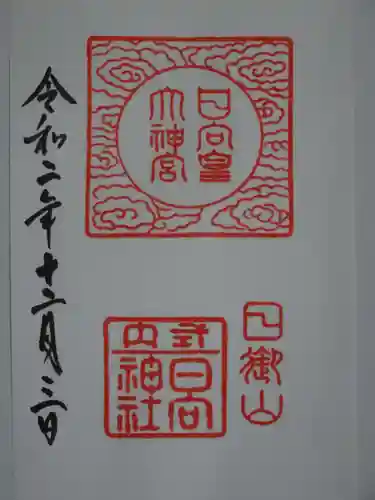 日向皇
大神宮
日御山
式内
日向
神社
令和二年十二月三日